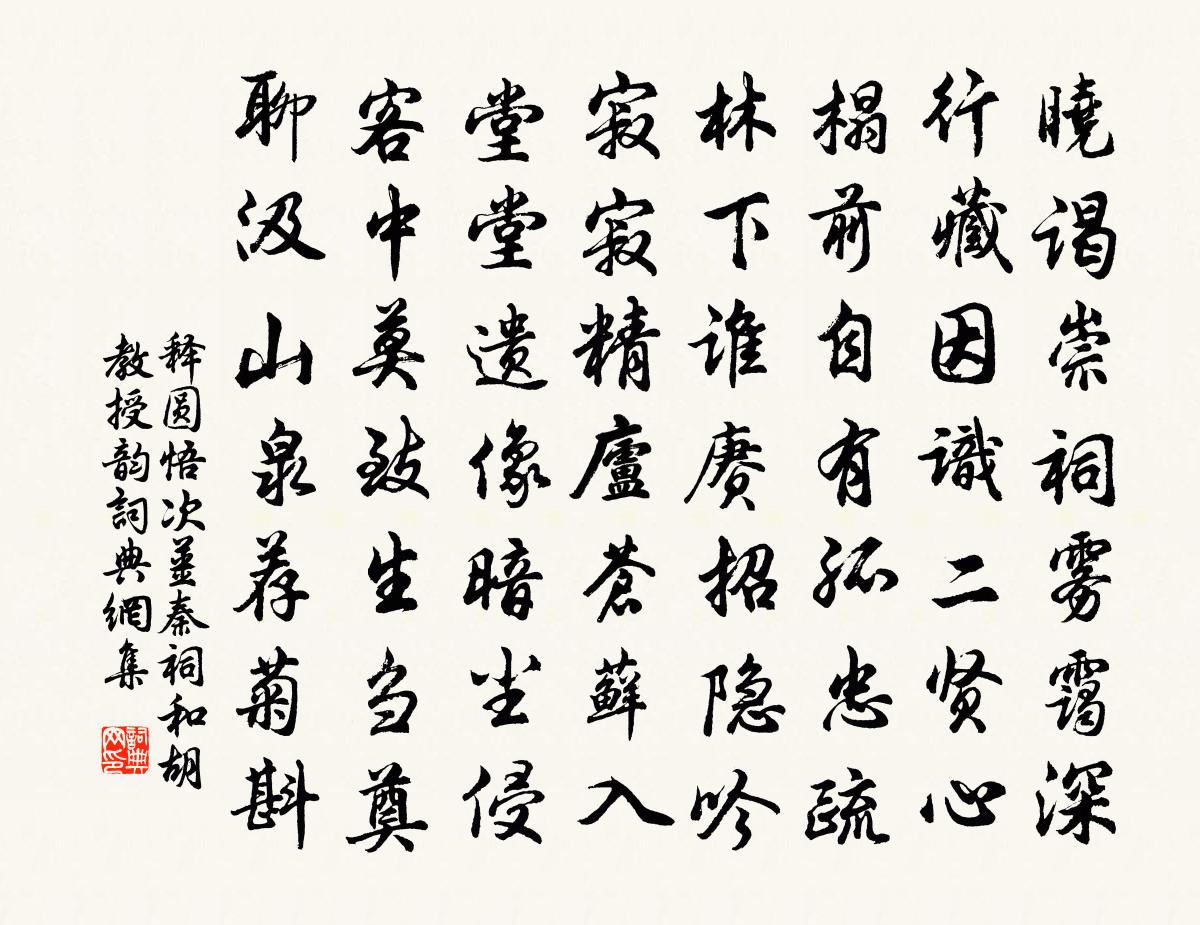 曉谒崇祠雾靄深
行藏因識二贤心
榻前自有孤忠疏
林下谁赓招隐吟
寂寂精廬苍蘚入
堂堂遗像暗尘侵
客中莫致生刍奠
聊汲山泉荐菊斟
释圆悟次薑秦祠和胡
教授韵詞典網集
詞典网印